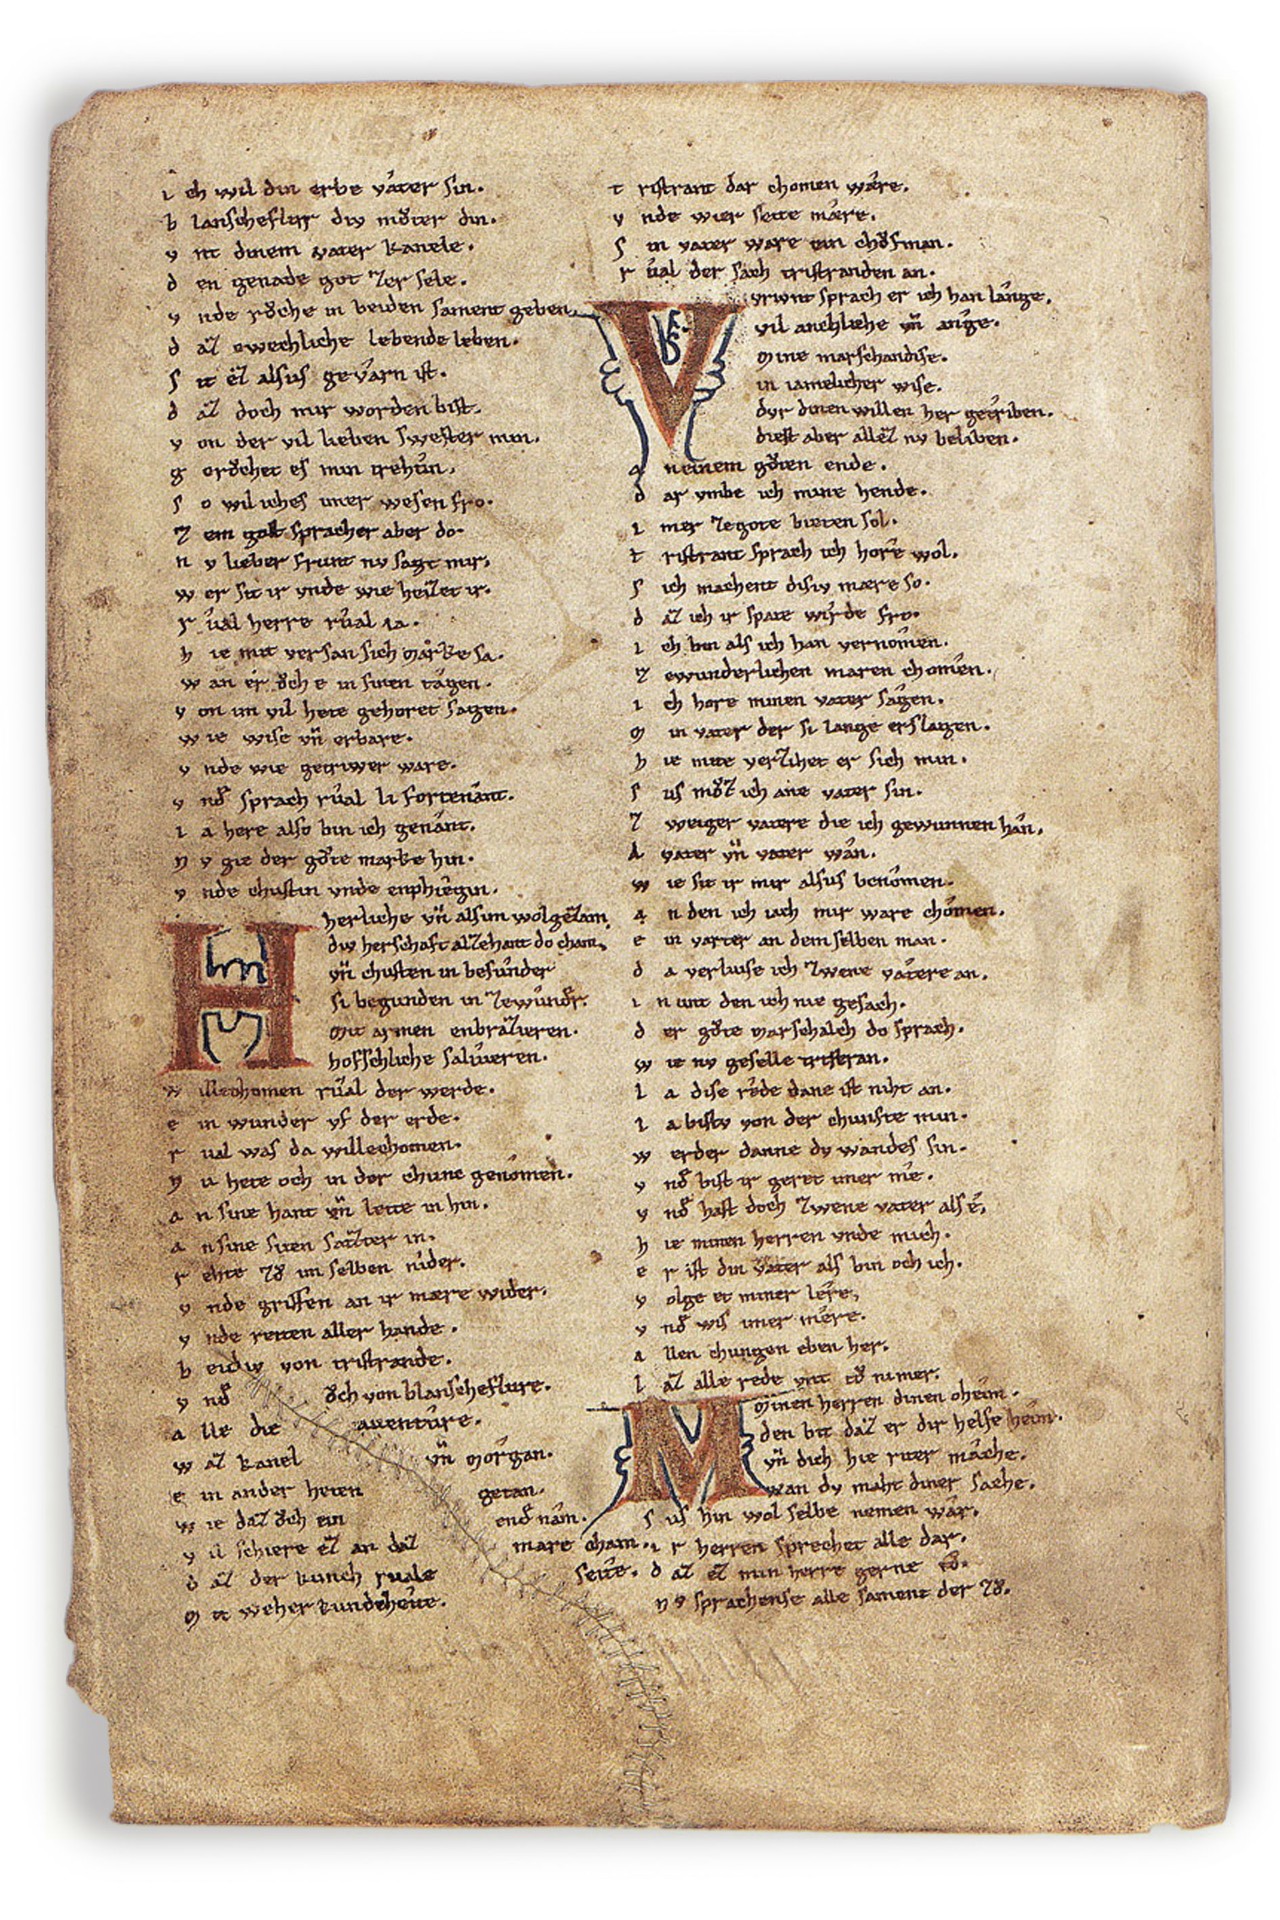 i ch wil din erbe vater sin.
b lanscheflvr div mvͦter din.
v nt dinem vater kanele.
d en genade got zer sele.
v nde rvͦche in beiden sament geben.
d az ewechliche lebende leben.
s it ez alsus gevarn ist.
d az doch mir worden bist.
v on der vil lieben swester min.
g ervͦchet es min trehtin.
s o wil iches imer wesen fro.
z em gast spracher aber do.
n v lieber frunt nv sagt mir.
w er sit ir vnde wie heizet ir.
r ual herre rual ia.
h ie mit versan sich marke sa.
w an er oͮch e in sinen tagen.
v on im vil hete gehoret sagen.
w ie wise vn̄ erbare.
v nde wie getriwer ware.
v nd sprach rual li fortenant.
i a here also bin ich genant.
n v gie der gvͦte marke hin.
v nde chustin vnde enphiegin.
H herliche vn̄ alsim wolgezam.
div herschaft alzehant do cham.
vn̄ chusten in besunder
si begunden in zewunder.
mit armen enbrazieren.
hofschliche saluieren.
w illechomen rual der werde.
e in wunder vf der erde.
r ual was da willechomen.
n u hete och in der chunc genomen.
a n sine hant vn̄ leite in hin.
a n sine siten sazter in.
r ehte zv im selben nider.
v nde griffen an ir mære wider.
v nde retten aller hande.
b eidiv von tristrande.
v nd oͮch von blanscheflure.
a lle die auenture.
w az kanel vn̄ morgan.
e in ander heten getan.
w ie daz oͮch ein end nam.
v il schiere ez an daz mare cham.
d az der kunch ruale seite.
m it weher kundeheite.
t ristrant dar chomen wære.
v nde wier seite mære.
s in vater ware ein chovfman.
r ual der sach tristranden an.
V vrivnt sprach er ich han lange.
vil anchliche vn̄ ange.
mine marschandise.
in iamelicher wise.
dvr dinen willen her getriben.
diest aber allez nv beliben.
a neinem gvͦten ende.
d ar vmbe ich mine hende.
i mer zegote bieten sol.
t ristrant sprach ich hore wol.
s ich machent disiv mære so.
d az ich ir spate wirde fro.
i ch bin als ich han vernomen.
z ewunderlichen maren chomen.
i ch hore minen vater sagen.
m in vater der si lange erslagen.
h ie mite verzihet er sich min.
s us mvͦz ich ane vater sin.
z weiger vatere die ich gewunnen han.
a vater vn̄ vater wan.
w ie sit ir mir alsus benomen.
a n den ich iach mir ware chomen.
e in varter an dem selben man.
d a verluise ich zwene vatere an.
i n unt den ich nie gesach.
d er gvͦte marschalch do sprach.
w ie nv geselle tristran.
l a dise rede dane ist niht an.
i a bistv von der chunfte min.
w erder danne dv wandes sin.
v nd bist ir geret imer me.
v nd hast doch zwene vater als e.
h ie minen herren vnde mich.
e r ist din vater als bin och ich.
v olge et miner lere.
v nd wis imer mere.
a llen chungen eben her.
l az alle rede vnt tv nimer.
M minen herren dinen oheim.
den bit daz er dir helfe heim.
vn̄ dich hie riter mache.
wan dv maht diner sache.
s us hin wol selbe nemen war.
i r herren sprechet alle dar.
d az ez min herre gerne tv.
n v sprachense alle sament der zv.